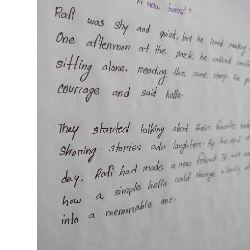 A new friend
Rafi was shy and quiet, but he loved reading
One afternoon at the park, he noticed another
sitting alone, reading the same story. He
courrage and said hello.
They starrted talking about their favorite books
Sharing storries adn laughterr. By the end of
day, Rafi had made a new friend. It was
how a simple hello could change a lonely
into a memorrable one.